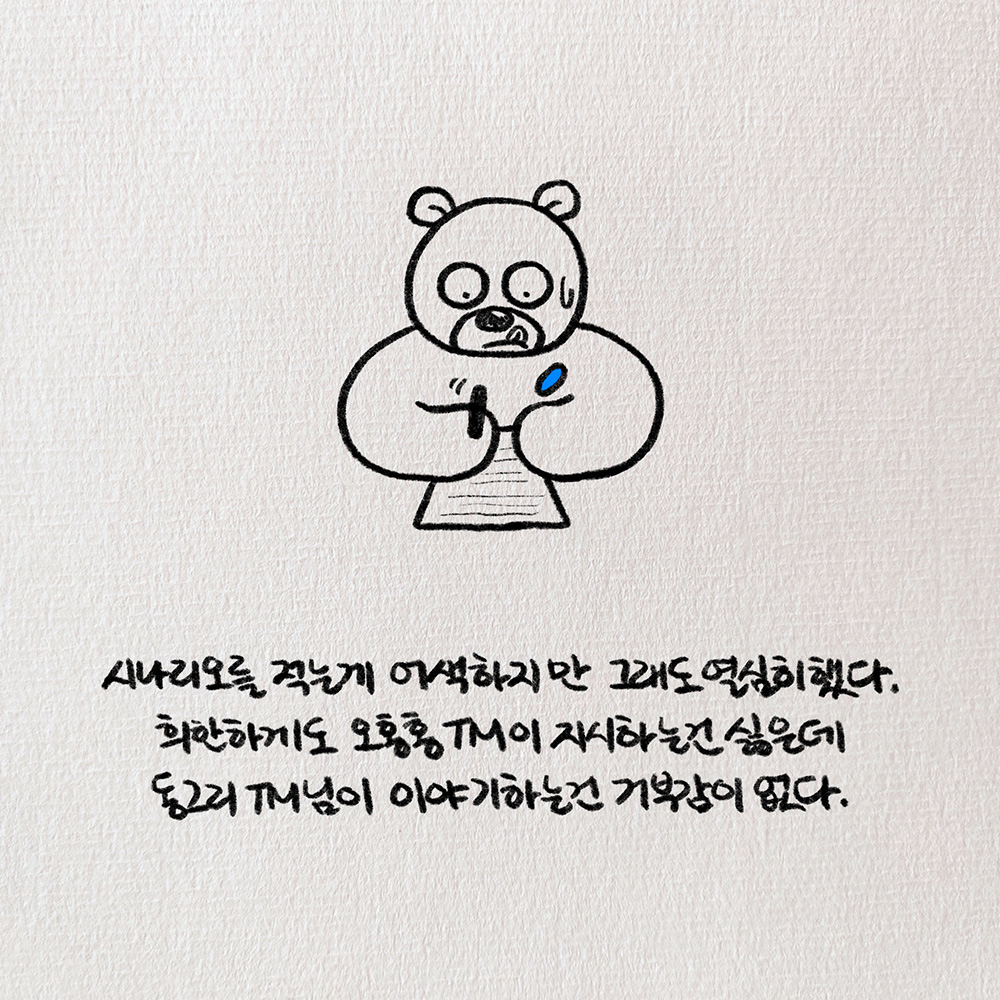 시나리오를 적는게 어색하지만 그래도 열심히했다.
희안하게도 오홍홍TM이 지시하는건 싫은데
동그리TM님이 이야기하는건 거부감이 없다.